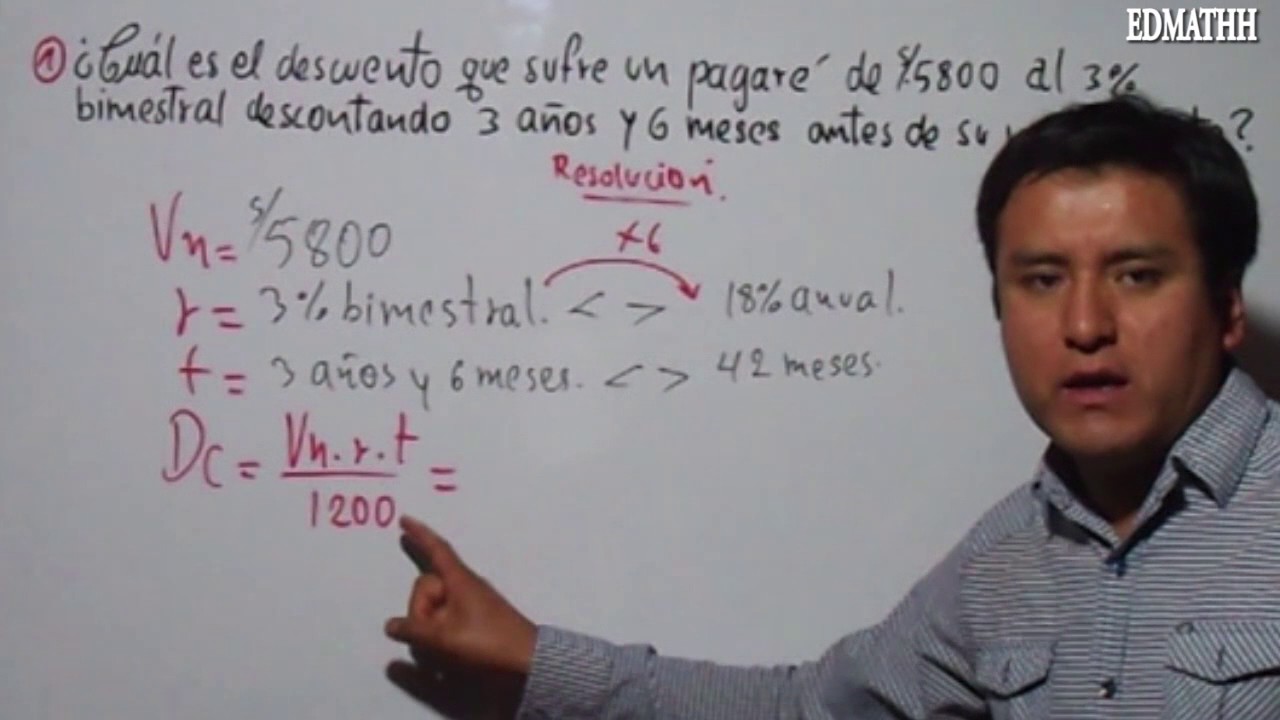 EDMATHH
① ¿Cuál es el descuento que sufre un pagaré de S/5800 al 3%
bimestral descontando 3 años y 6 meses antes de su ?
Resolución.
Vn = S/5800
×6
r = 3% bimestral. < > 18% anual.
t = 3 años y 6 meses. < > 42 meses.
Dc = Vn . r . t =
1200